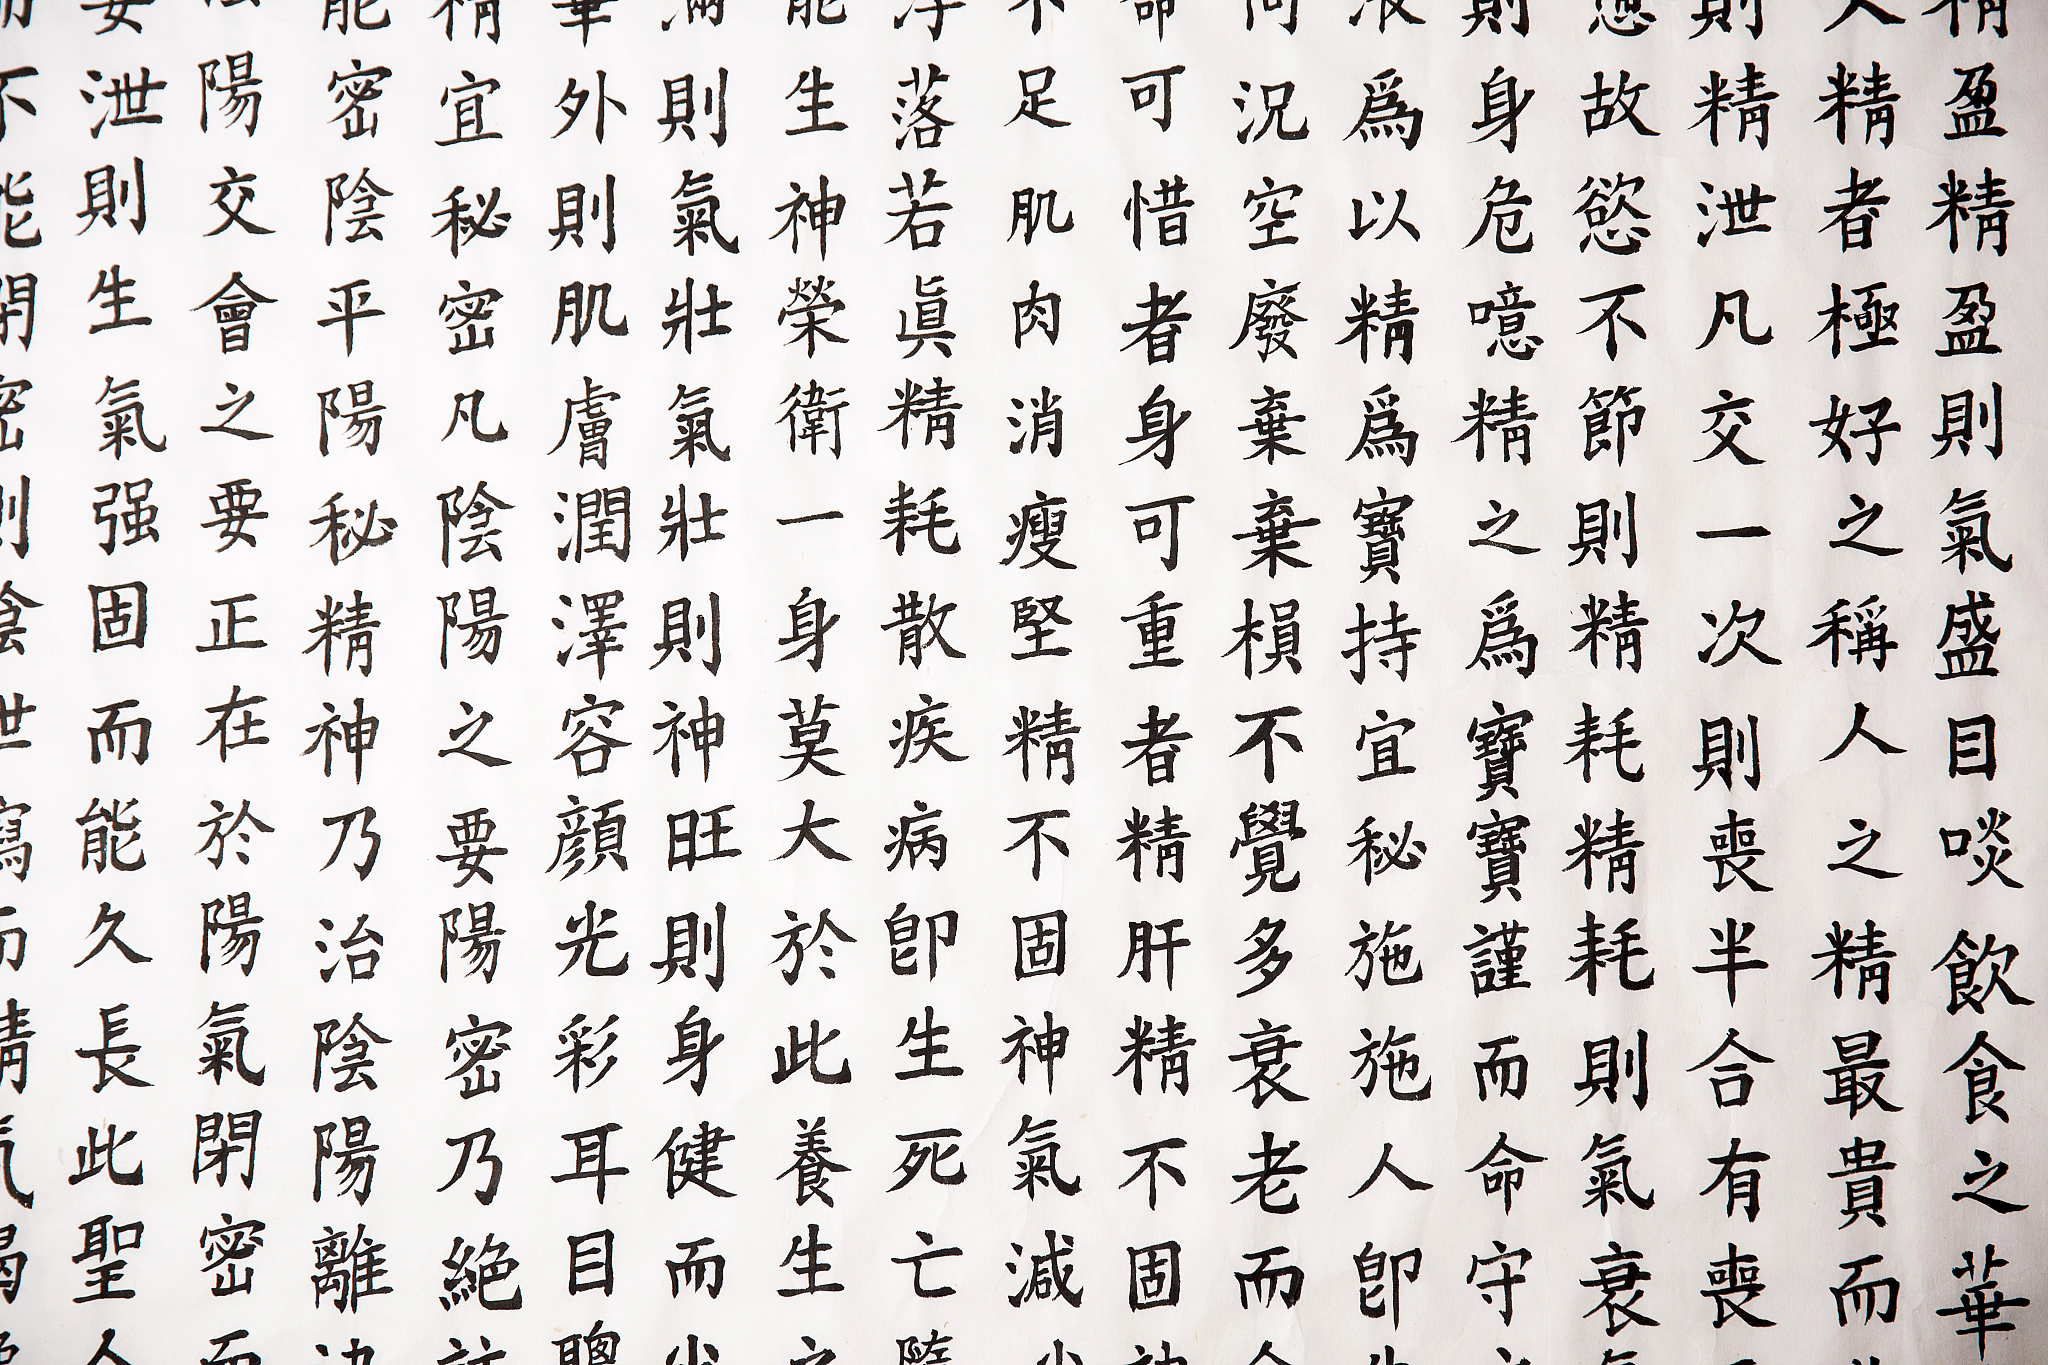 精盈精盈則氣盛目啖飲食之華
人精者極好之稱人之精最貴而
則精泄凡交一次則喪半合有喪
慾故慾不節則精耗精耗則氣衰
則身危噫精之爲寶寶謹而命守
液爲以精爲寶持宜秘施施人卽
何況空廢棄棄損不覺多衰老而
命可惜者身可重者精肝精不固
不足肌肉消瘦堅精不固神氣減
浮落若眞精耗散疾病卽生死亡隨
能生神榮衛一身莫大於此養生之
滿則氣壯氣壯則神旺則身健而少
華外則肌膚潤澤容顔光彩耳目聰
精宜秘密凡陰陽之要陽密乃絶
能密陰平陽秘精神乃治陰陽離決
陽交會之要正在於陽氣閉密而
要泄則生氣强固而能久長此聖人
不能閉密則陰泄寫而精氣竭